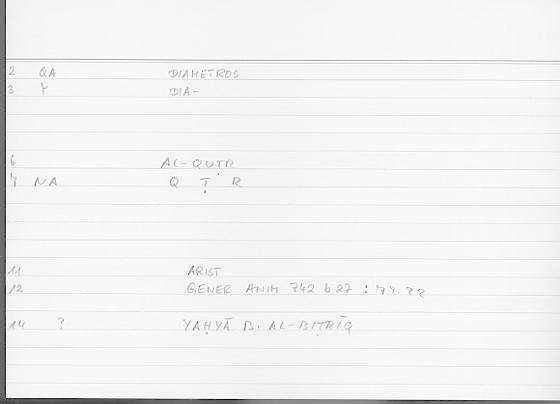 2 QA DIAMETROS
3 Y DIA-
6 AL-QUṬR
7 NA Q Ṭ R
11 ARIST
12 GENER ANIM 742 b 27 : 79.22
14 ? YAḤYĀ B. AL-BIṬRĪQ